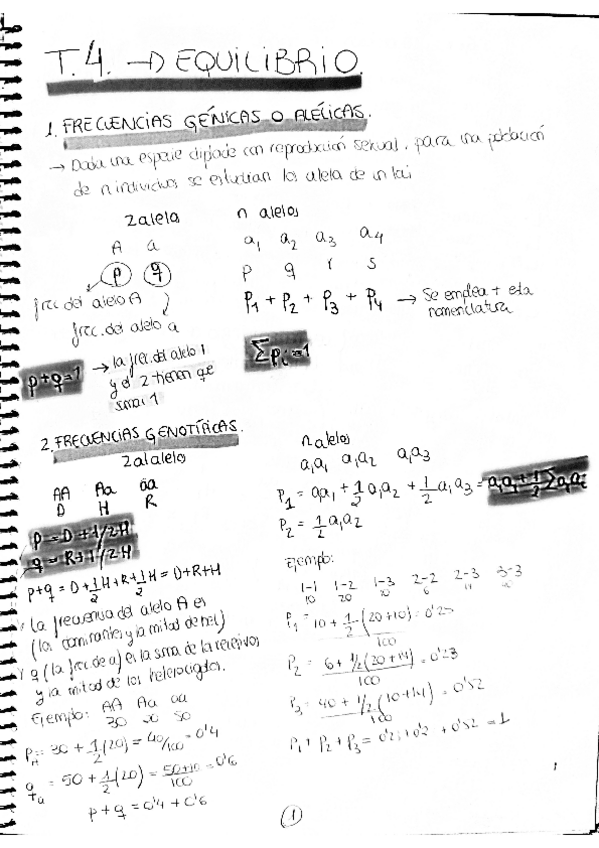 T.4. → EQUILIBRIO.
1. FRECUENCIAS GÉNICAS O ALÉLICAS.
→ Dada una especie diploide con reproducción sexual, para una población
de n individuos se estudian los alelos de un loci
2 alelos
A a
p q
frec. del alelo A
frec. del alelo a
p+q=1
→ la frec. del alelo 1
y el 2 tienen que
sumar 1
n alelos
a1 a2 a3 a4
p q r s
P1 + P2 + P3 + P4 → Se emplea + esta
nomenclatura
∑Pi=1
2. FRECUENCIAS GENOTÍPICAS.
2 alelos
AA Aa aa
D H R
p = D + 1/2 H
q = R + 1/2 H
p+q = D + 1/2 H + R + 1/2 H = D+R+H
la frecuencia del alelo A es
(los dominantes y la mitad de het)
q (la frec de a) es la suma de los recesivos
y la mitad de los heterocigotos.
Ejemplo: AA Aa aa
30 20 50
PA = 30 + 1/2 (20) = 40/100 = 0'4
qa = 50 + 1/2 (20) = 50+10/100 = 0'6
p + q = 0'4 + 0'6
n alelos
a1a1 a1a2 a1a3
P1 = a1a1 + 1/2 a1a2 + 1/2 a1a3 = a1a1 + 1/2 ∑ a1ai
P2 = 1/2 a1a2
Ejemplo:
1-1 1-2 1-3 2-2 2-3 3-3
10 20 10 6
P1 = 10 + 1/2 (20+10) / 100 = 0'25
P2 = 6 + 1/2 (20+14) / 100 = 0'23
P3 = 40 + 1/2 (10+14) / 100 = 0'52
P1 + P2 + P3 = 0'52 = 1
1